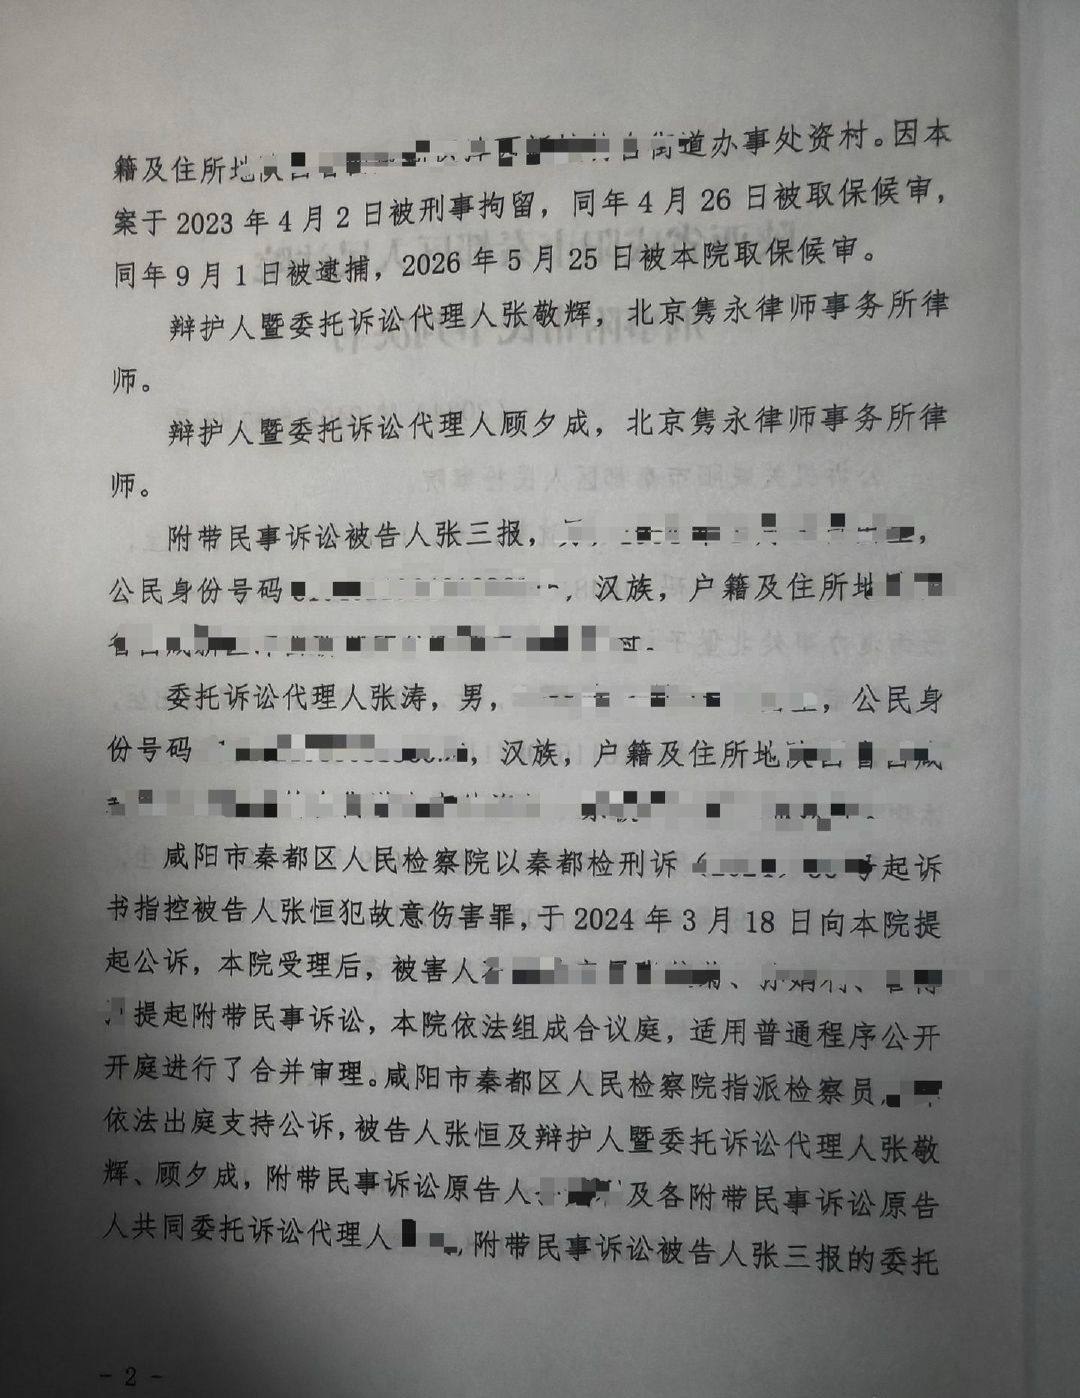 籍及住所地 街道办事处资村。因本
案于2023年4月2日被刑事拘留，同年4月26日被取保候审，
同年9月1日被逮捕，2026年5月25日被本院取保候审。
辩护人暨委托诉讼代理人张敬辉，北京隽永律师事务所律
师。
辩护人暨委托诉讼代理人顾夕成，北京隽永律师事务所律
师。
附带民事诉讼被告人张三报，
公民身份号码 ，汉族，户籍及住所地
委托诉讼代理人张涛，男， ，公民身
份号码 ，汉族，户籍及住所地
咸阳市秦都区人民检察院以秦都检刑诉 号起诉
书指控被告人张恒犯故意伤害罪，于2024年3月18日向本院提
起公诉，本院受理后，被害人
提起附带民事诉讼，本院依法组成合议庭，适用普通程序公开
开庭进行了合并审理。咸阳市秦都区人民检察院指派检察员
依法出庭支持公诉，被告人张恒及辩护人暨委托诉讼代理人张敬
辉、顾夕成，附带民事诉讼原告人 及各附带民事诉讼原告
人共同委托诉讼代理人 ，附带民事诉讼被告人张三报的委托
- 2 -